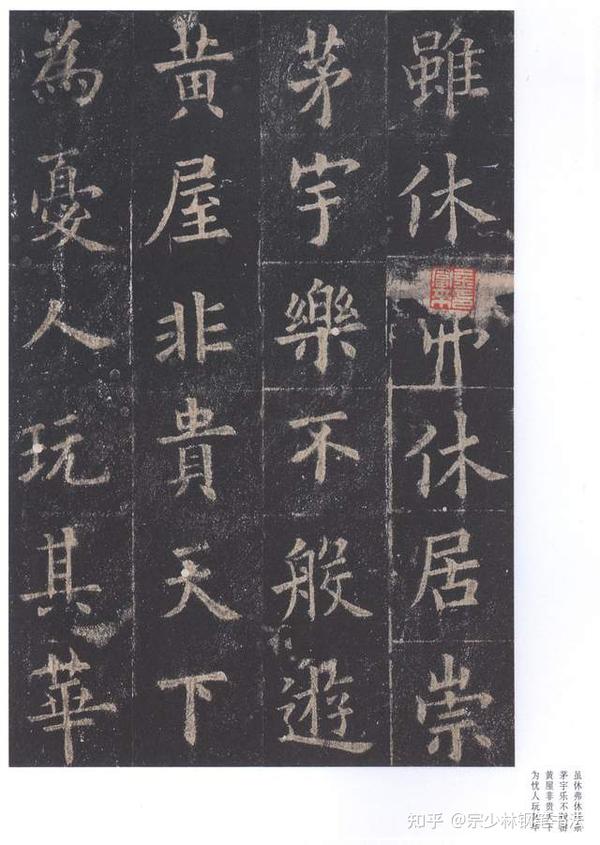 雖休弗休居崇
茅宇樂不般遊
黄屋非貴天下
為憂人玩其華
虽休弗休居崇
茅宇乐不般游
黄屋非贵天下
为忧人玩其华
知乎 @宗少林钢笔书法